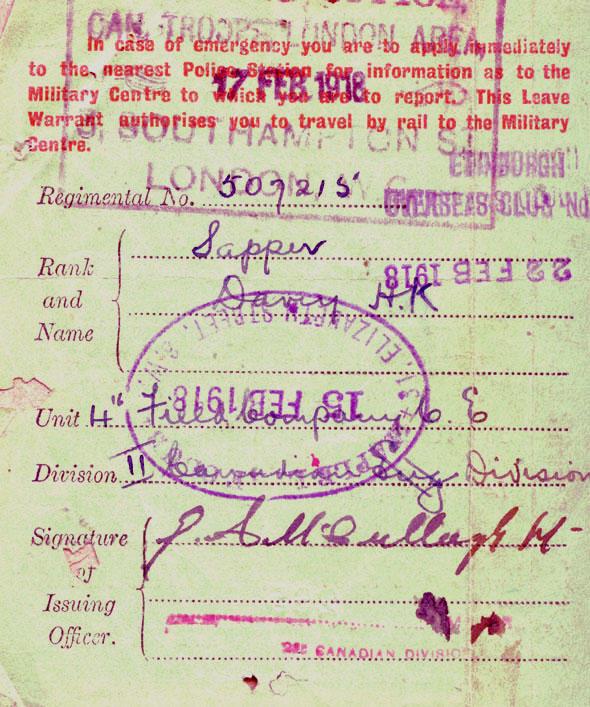 CAN. TROOPS LONDON AREA,
In case of emergency you are to apply immediately
to the nearest Police Station for information as to the
17 FEB 1918
Military Centre to which you are to report. This Leave
Warrant authorises you to travel by rail to the Military
Centre.
SOUTHAMPTON ST.
LONDON, W.C.
EDINBURGH
OVERSEAS CLUB
Regimental No. 507215
Rank
and
Name
Sapper
22 FEB 1918
Davey H.K
ELIZABETH STREET, S.W.
15 FEB 1918
Unit 4" Field Company C. E
Division II Canadian Division
Signature
of
Issuing
Officer.
McCullagh
CANADIAN DIVISION